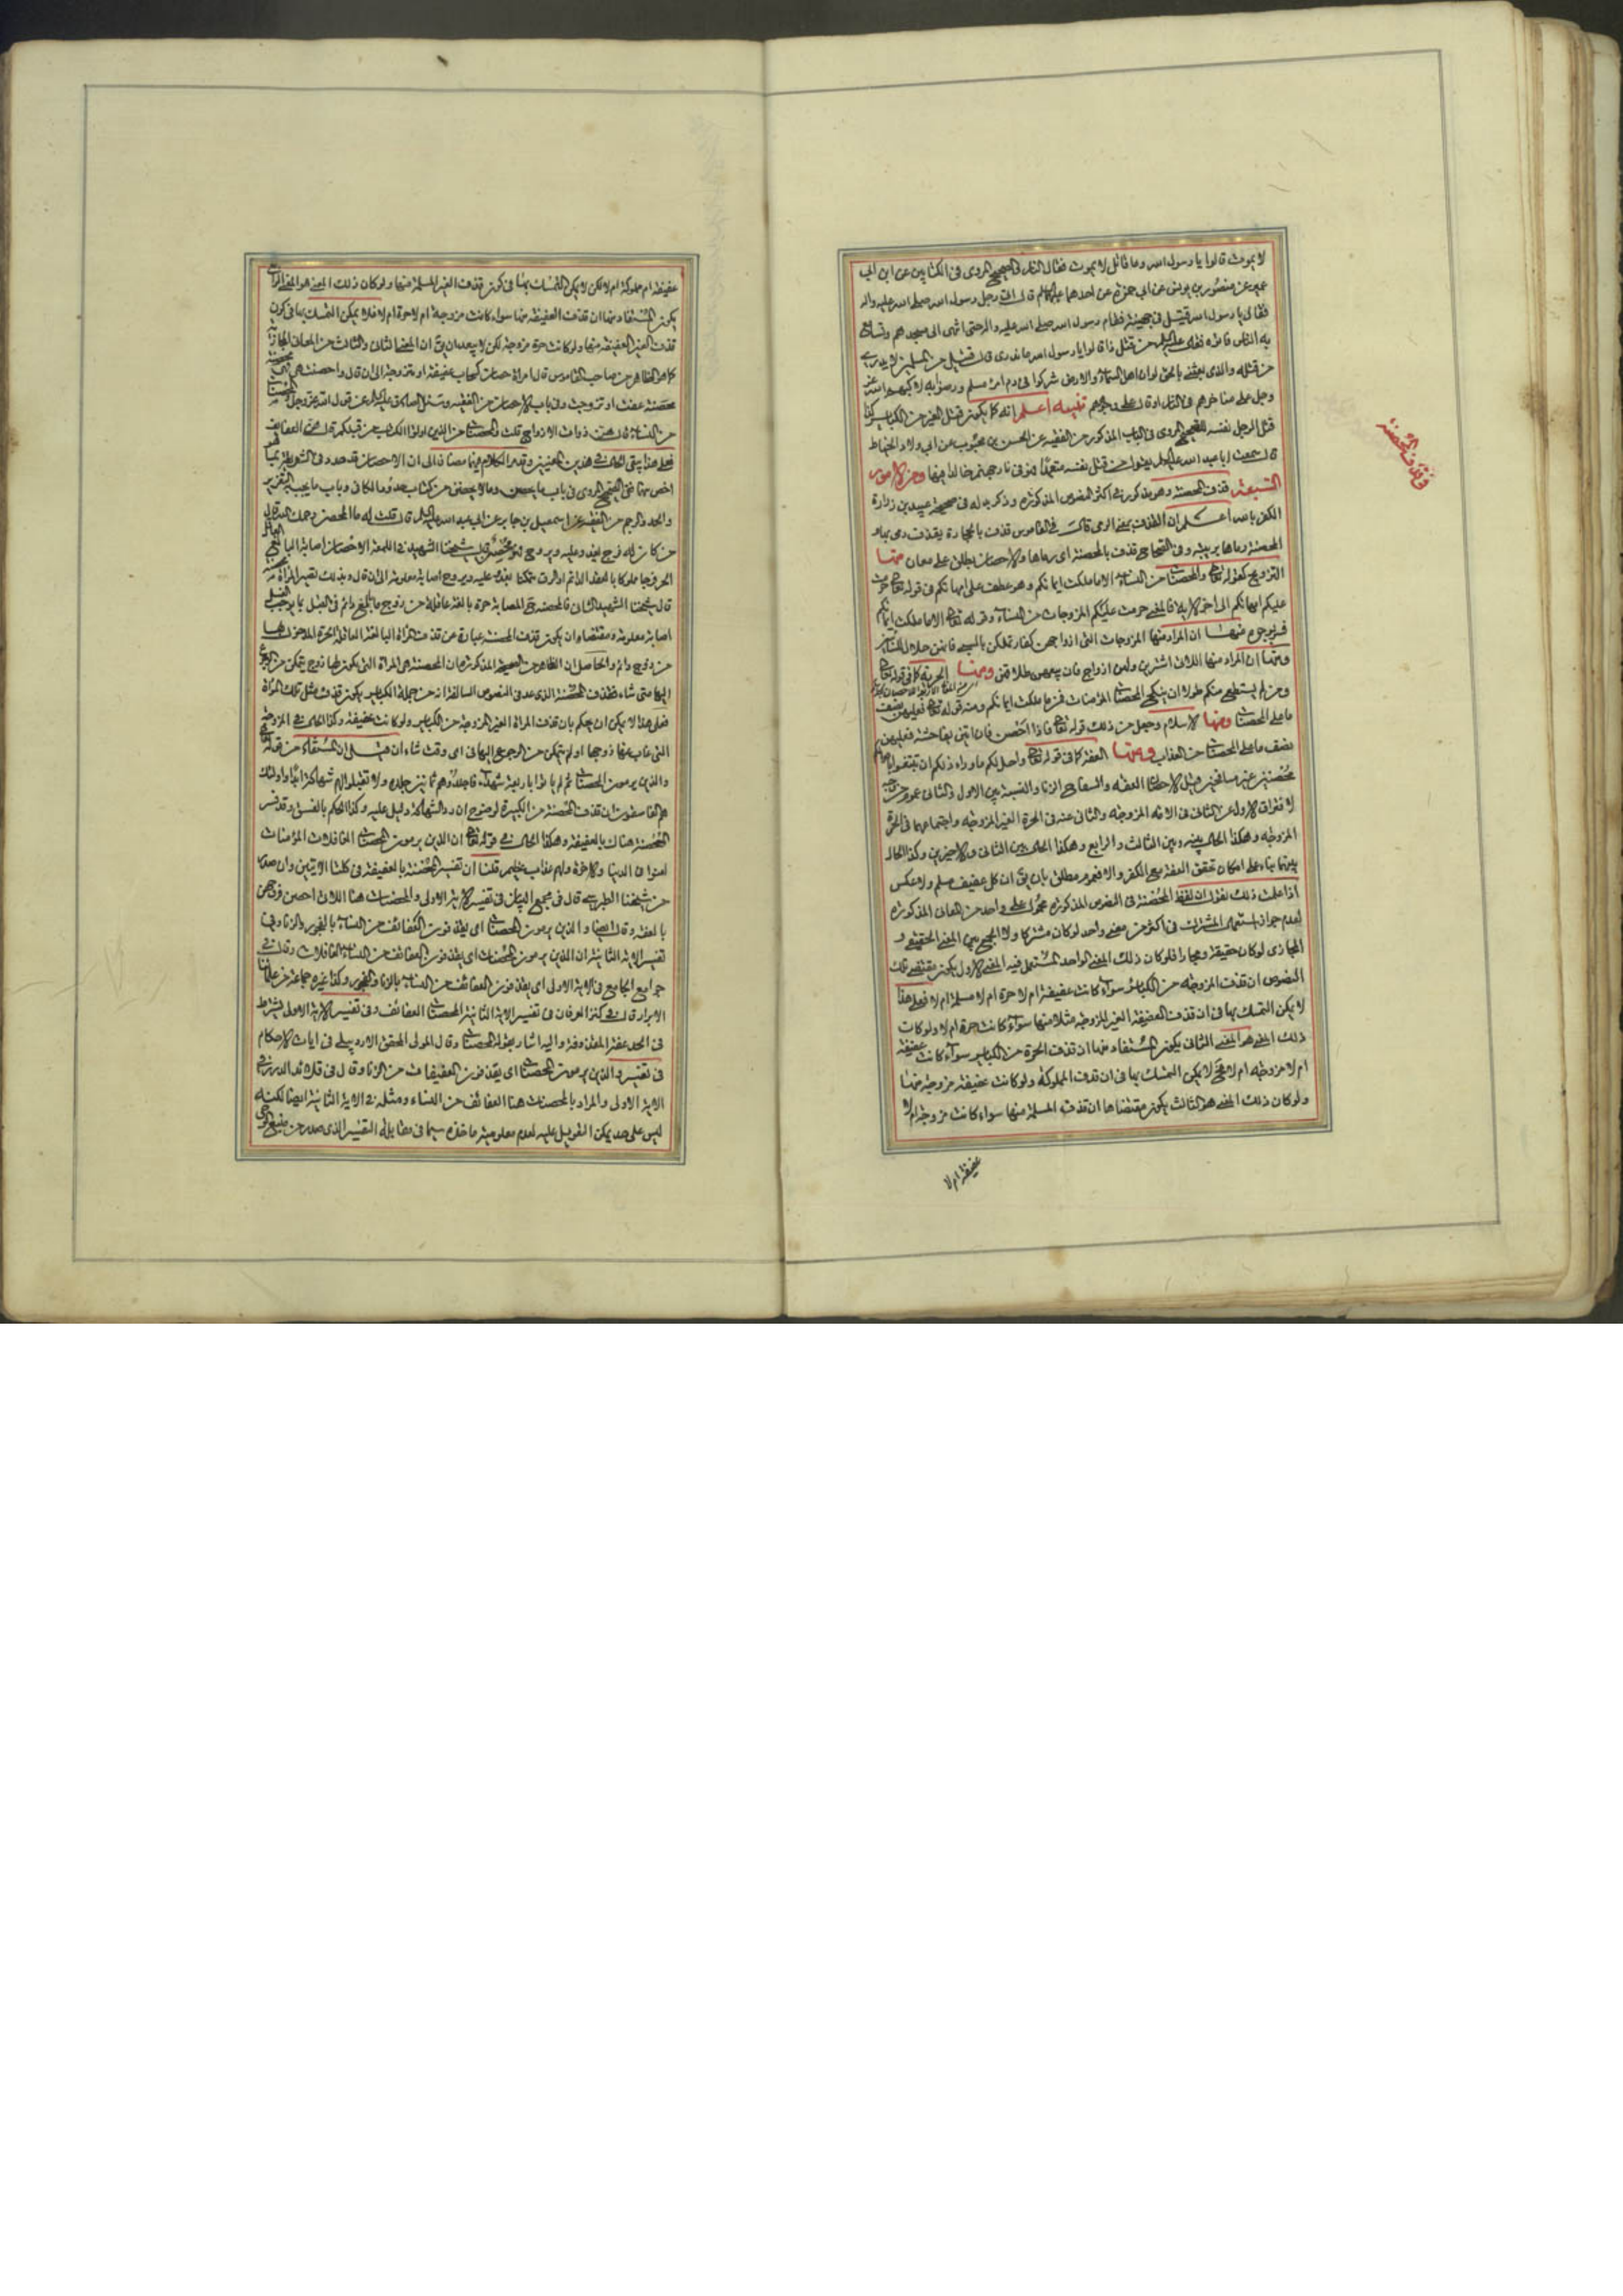 لا يموت قالوا يا رسول الله وما قاتل لا يموت فقال النار في الصحيح المروي في الكتابين عن ابن ابي
عمير عن منصور بن يونس عن ابي حمزة عن احدهما عليهما السلام قال اتى رجل رسول الله صلى الله عليه واله
فقال يا رسول الله قتيل في جهينة فقام رسول الله صلى الله عليه واله حتى انتهى الى مسجدهم وتسامع
به الناس فاتوه فقال عليه السلام من قتل ذا قالوا يا رسول الله ما ندري قال قتيل من المسلمين لا يدرى
من قتله والذي بعثني بالحق لو ان اهل السماء والارض شركوا في دم امرء مسلم ورضوا به لاكبهم الله عز
وجل على مناخرهم في النار او قال على وجوههم تنبيه اعلم انه كما يكون قتل الغير من الكبائر كذا
قتل الرجل نفسه للصحيح المروي في الباب المذكور من الفقيه عن الحسن بن محبوب عن ابي ولاد الحناط
قال سمعت ابا عبد الله عليه السلام يقول من قتل نفسه متعمدا فهو في نار جهنم خالدا فيها ومن الامور
السبعة قذف المحصنة وهو مذكور في اكثر النصوص المذكورة وذكر بدله في صحيحة عبيد بن زرارة
الكفر بالله اعلم ان القذف بمعنى الرمي قال في القاموس قذف بالحجارة يقذف رمى بها و
المحصنة رماها بريبة وفي الصحاح قذف بالمحصنة اي رماها والاحصان يطلق على معان منها
التزويج كقوله تعالى والمحصنات من النساء الا ما ملكت ايمانكم وهو عطف على امهاتكم في قوله تعالى حرمت
عليكم امهاتكم الى اخر الاية فالمعنى حرمت عليكم المزوجات من النساء وقوله تعالى الا ما ملكت ايمانكم
فيه وجوه منها ان المراد منها المزوجات التي ازواجهن كفار تملكن بالسبي فانهن حلال للسابي
ومنها ان المراد منها اللاتي اشترين ولهن ازواج فان بيعهن طلاقهن ومنها الحرية كما في قوله تعالى
ومن لم يستطع منكم طولا ان ينكح المحصنات المؤمنات فمن ما ملكت ايمانكم ومنه قوله تعالى فعليهن نصف
ما على المحصنات ومنها الاسلام وجعل من ذلك قوله تعالى فاذا احصن فان اتين بفاحشة فعليهن
نصف ما على المحصنات من العذاب ومنها العفة كما في قوله تعالى واحل لكم ما وراء ذلكم ان تبتغوا باموالكم
محصنين غير مسافحين قيل الاحصان العفة والسفاح الزنا والنسبة بين الاول والثاني عموم من وجه
لافتراق الاول عن الثاني في الامة المزوجة والثاني عنه في الحرة الغير المزوجة واجتماعهما في الحرة
المزوجة وهكذا الحال بينه وبين الثالث والرابع وهكذا الحال بين الثاني والاخيرين وكذا الحال
بينهما بناء على امكان تحقق العفة مع الكفر والا فعموم مطلق بان يق ان كل عفيف مسلم ولا عكس
اذا علمت ذلك نقول ان لفظ المحصنة في النصوص المذكورة محمول على واحد من المعاني المذكورة
لعدم جواز استعمال المشترك في اكثر من معنى واحد لو كان مشتركا ولا الجمع بين المعنى الحقيقي و
المجازي لو كان حقيقة ومجازا فلو كان ذلك المعنى الواحد المستعمل فيه المعنى الاول يكون مقتضى تلك
النصوص ان قذف المزوجة من الكبائر سواء كانت عفيفة ام لا حرة ام لا مسلمة ام لا فعلى هذا
لا يمكن التمسك بها في ان قذف العفيفة الغير المزوجة مثلا منها سواء كانت حرة ام لا ولو كان
ذلك المعنى هو المعنى الثاني يكون المستفاد منها ان قذف الحرة من الكبائر سواء كانت عفيفة
ام لا مزوجة ام لا فح لا يمكن التمسك بها في ان قذف المملوكة ولو كانت عفيفة مزوجة منها
ولو كان ذلك المعنى هو الثالث يكون مقتضاها ان قذف المسلمة منها سواء كانت مزوجة ام لا
عفيفة ام لا
وقذف المحصنة
عفيفة ام مملوكة ام لا لكن لا يمكن التمسك بها في كون قذف الغير المسلمة منها ولو كان ذلك المعنى هو المعنى الرابع
يكون المستفاد منها ان قذف العفيفة منها سواء كانت مزوجة ام لا حرة ام لا فلا يمكن التمسك بها في كون
قذف الغير العفيفة منها ولو كانت حرة مزوجة لكن لا يبعد ان يق ان المعنى الثاني والثالث من المعاني المجازية
كما هو الظاهر من صاحب القاموس قال امراة حصان كسحاب عفيفة او متزوجة الى ان قال واحصنت هي
محصنة عفت او تزوجت وفي باب الاحصان من الفقيه وسئل الصادق عليه السلام عن قول الله عز وجل والمحصنات
من النساء قال هن ذوات الازواج قلت والمحصنات من الذين اوتوا الكتاب من قبلكم قال هن العفائف
فعلى هذا يبقى الكلام في هذين المعنيين
اخص منها ففي الصحيح المروي في باب ما يحصن وما لا يحصن من كتاب حدود الكافي وباب ما يجب به التعزير
والحد والرجم من الفقيه عن اسمعيل بن جابر عن ابي عبد الله عليه السلام قال قلت له ما المحصن رحمك الله قال
من كان له فرج يغدو عليه ويروح فهو محصن قال شيخنا الشهيد في اللمعة الاحصان اصابة البالغ العاقل
الحر فرجا مملوكا بالعقد الدائم او الرق متمكنا يغدو عليه ويروح اصابة معلومة الى ان قال وبذلك تصير المراة محصنة
قال شيخنا الشهيد الثاني فالمحصنة ح المصابة حرة بالغة عاقلة من زوج بالغ دائم في القبل بما يوجب الغسل
اصابة معلومة ومقتضاه ان يكون قذف المحصنة عبارة عن قذف المراة البالغة العاقلة الحرة المدخول بها
من زوج دائم والحاصل ان الظاهر من الصحيحة المذكورة ان المحصنة هي المراة التي يكون لها زوج يتمكن من الرجوع
اليها متى شاء فقذف المحصنة الذي عد في النصوص السالفة انه من جملة الكبائر يكون قذف مثل تلك المراة
فعلى هذا لا يمكن ان يحكم بان قذف المراة الغير المزوجة من الكبائر ولو كانت عفيفة وكذا الحال في المزوجة
التي غاب عنها زوجها او لم يتمكن من الرجوع اليها في اي وقت شاء ان قلت ان المستفاد من قوله تعالى
والذين يرمون المحصنات ثم لم ياتوا باربعة شهداء فاجلدوهم ثمانين جلدة ولا تقبلوا لهم شهادة ابدا واولئك
هم الفاسقون ان قذف المحصنة من الكبيرة لوضوح ان رد الشهادة دليل عليه وكذا الحكم بالفسق وقد فسر
المحصنة هناك بالعفيفة وهكذا الحال في قوله تعالى ان الذين يرمون المحصنات الغافلات المؤمنات
لعنوا في الدنيا والاخرة ولهم عذاب عظيم قلنا ان تفسير المحصنة بالعفيفة في كلتا الايتين وان صدر
من شيخنا الطبرسي قال في مجمع البيان في تفسير الاية الاولى والمحصنات هنا اللاتي احصن فروجهن
بالعفة وقال ايضا والذين يرمون المحصنات اي يقذفون العفائف من النساء بالفجور والزنا وفي
تفسير الاية الثانية ان الذين يرمون المحصنات اي يقذفون العفائف من النساء الغافلات وقال في
جوامع الجامع في الاية الاولى اي يقذفون العفائف من النساء بالزنا والفجور وكذا غيره جماعة من علمائنا
الابرار قال في كنز العرفان في تفسير الاية الثانية المحصنات العفائف وفي تفسير الاية الاولى يشترط
في الحد عفة المقذوفة واليه اشار بقوله المحصنات وقال المولى المحقق الاردبيلي في ايات الاحكام
في تفسير والذين يرمون المحصنات اي يقذفون العفيفات من الزنا وقال في قلائد الدرر في
الاية الاولى والمراد بالمحصنات هنا العفائف من النساء ومثله في الاية الثانية ايضا لكنه
ليس على حد يمكن التعويل عليه لعدم معلومية ماخذه سيما في مقابلة التفسير الذي صدر من منبع الوحي